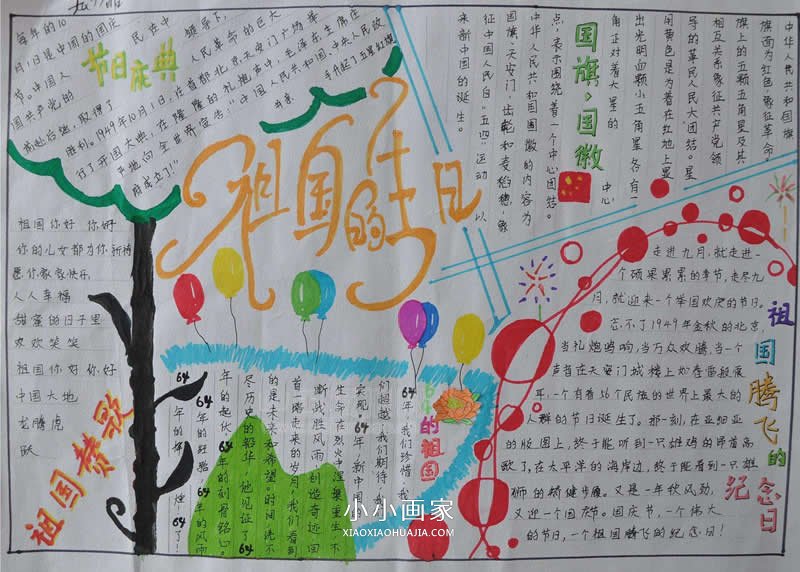 节日庆典
每年的10
月1日是中国的国庆
节。中国人
国共产党的
民在中
领导下,
人民革命的巨大
成立了!"
祖国的生日
国旗。国徽
中华人民共和国国旗
旗面为红色,象征革命。
旗上的五颗五角星及其
相互关系象征共产党领
导的革民人民大团结。星
用黄色是为着在红地上显
出光明血颗小五角星各有一
角正对着大星的
中心
点,表示围绕着一个中心团结。
中华人民共和国国徽的内容为
国旗、天安门、齿轮和麦稻穗,象
征中国人民自"五四"运动以
来新中国的诞生。
祖国你好 你好
你的儿女都为你祈祷
愿你歌歌快乐
人人幸福
甜蜜的日子里
欢欢笑笑
祖国你好你好
中国大地
龙腾虎
跃
祖国赞歌
64的祖国
64年,我们珍惜,我
们超越;我们期待,我
实现。64年,新中国
生命在烈火中涅槃重生,不
断战胜风雨,创造奇迹。回
首一路走来的岁月,我们看到
的是未来和希望。时间洗不
尽历史的铅华,他见证了64
年的起伏,64年的刻骨铭心。
64年的经验,64年的风雨
64年的辉
煌,64了!
走进九月,就走进一
个硕果累累的季节,走尽九
月,就迎来一个举国欢庆的节日。
忘不了1949年金秋的北京,
当礼炮鸣响,当万众欢腾,当一个
声音在天安门城楼上如春雷般震
耳,一个有着56个民族的世界上最大的
人群的节日诞生了。那一刻,在亚细亚
的版图上,终于能听到一只雄鸡的呼首高
歌了,在太平洋的海岸边,终于能看到一只雄
狮的矫健步履。又是一年秋风劲,
又迎一个国庆节。国庆节,一个伟大
的节日,一个祖国腾飞的纪念日!
祖国腾飞的纪念日
小小画家
XIAOXIAOHUAJIA.COM